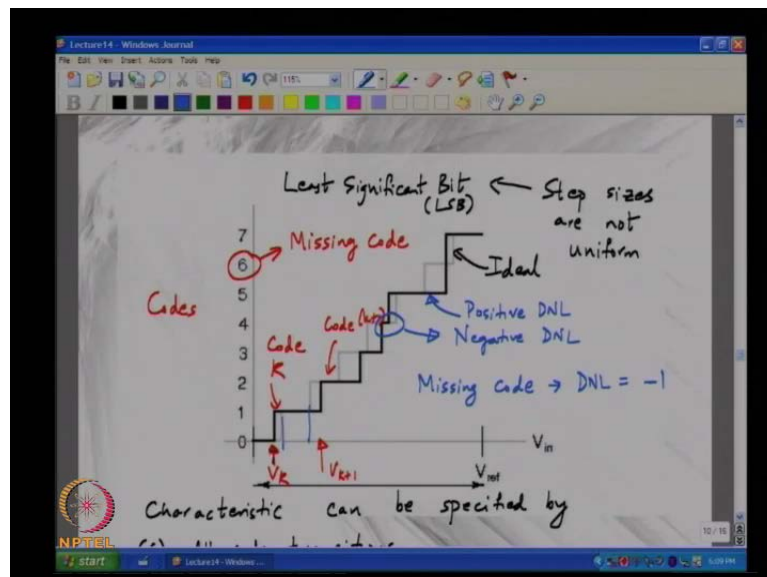 Lecture14 - Windows Journal
File Edit View Insert Actions Tools Help
115%
B I
Least Significant Bit
(LSB)
Step sizes
are not
uniform
7
Missing code
6
Ideal
Codes
5
Positive DNL
4
Code (k+1)
Negative DNL
Code
K
3
2
Missing code → DNL = -1
1
0
Vin
VK
VK+1
Vref
Characteristic can be specified by
10 / 16
NPTEL
start
Lecture14 - Windows ...
6:09 PM